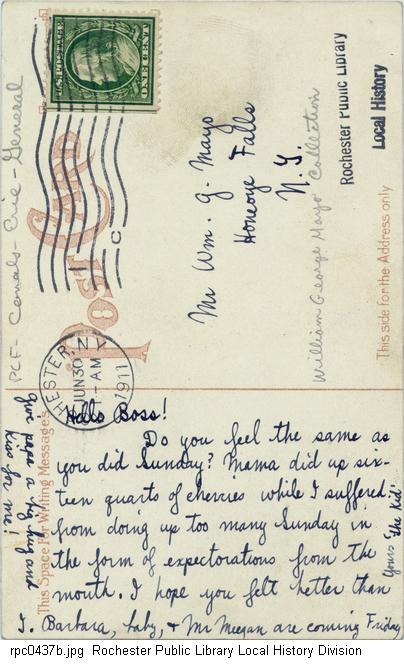 U.S. POSTAGE
ONE CENT
Rochester Public Library
Local History
PCF - Canals - Erie - General
POST CARD
C
Mr Wm. G. Mayo
Honeoye Falls
N. Y.
William George Mayo Collection
This side for the Address only
HESTER, N.Y.
JUN 30
1 - AM
1911
This Space for Writing Messages
Hello Boss!
Do you feel the same as
you did Sunday? Mama did up six-
teen quarts of cherries while I suffered
from doing up too many Sunday in
the form of expectorations from the
mouth. I hope you felt better than
I. Barbara, Laby, + Mr Meegan are coming Friday
Yours "The Kid"
Give papa a big hug and
kiss for me!
rpc0437b.jpg Rochester Public Library Local History Division